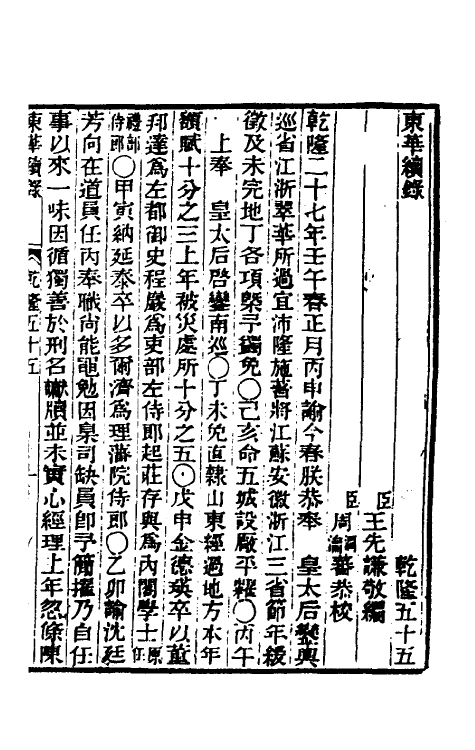 東華續錄 乾隆五十五
臣王先謙敬編
臣周潤蕃恭校
乾隆二十七年壬午春正月丙申諭今春朕恭奉 皇太后鑾輿
巡省江浙翠華所過宜沛隆施著將江蘇安徽浙江三省節年緩
徵及未完地丁各項槩予蠲免〇己亥命五城設廠平糶〇丙午
上奉 皇太后啓鑾南巡〇丁未免直隸山東經過地方本年
額賦十分之三上年被災處所十分之五〇戊申金德瑛卒以董
邦達爲左都御史程巖爲吏部左侍郎起莊存與爲內閣學士原任
禮部侍郎〇甲寅納延泰卒以多爾濟爲理藩院侍郎〇乙卯諭沈廷
芳向在道員任內奉職尚能黽勉因臬司缺員卽予簡擢乃自任
事以來一味因循獨善於刑名讞牘並未實心經理上年忽條陳
東華續錄 乾隆五十五